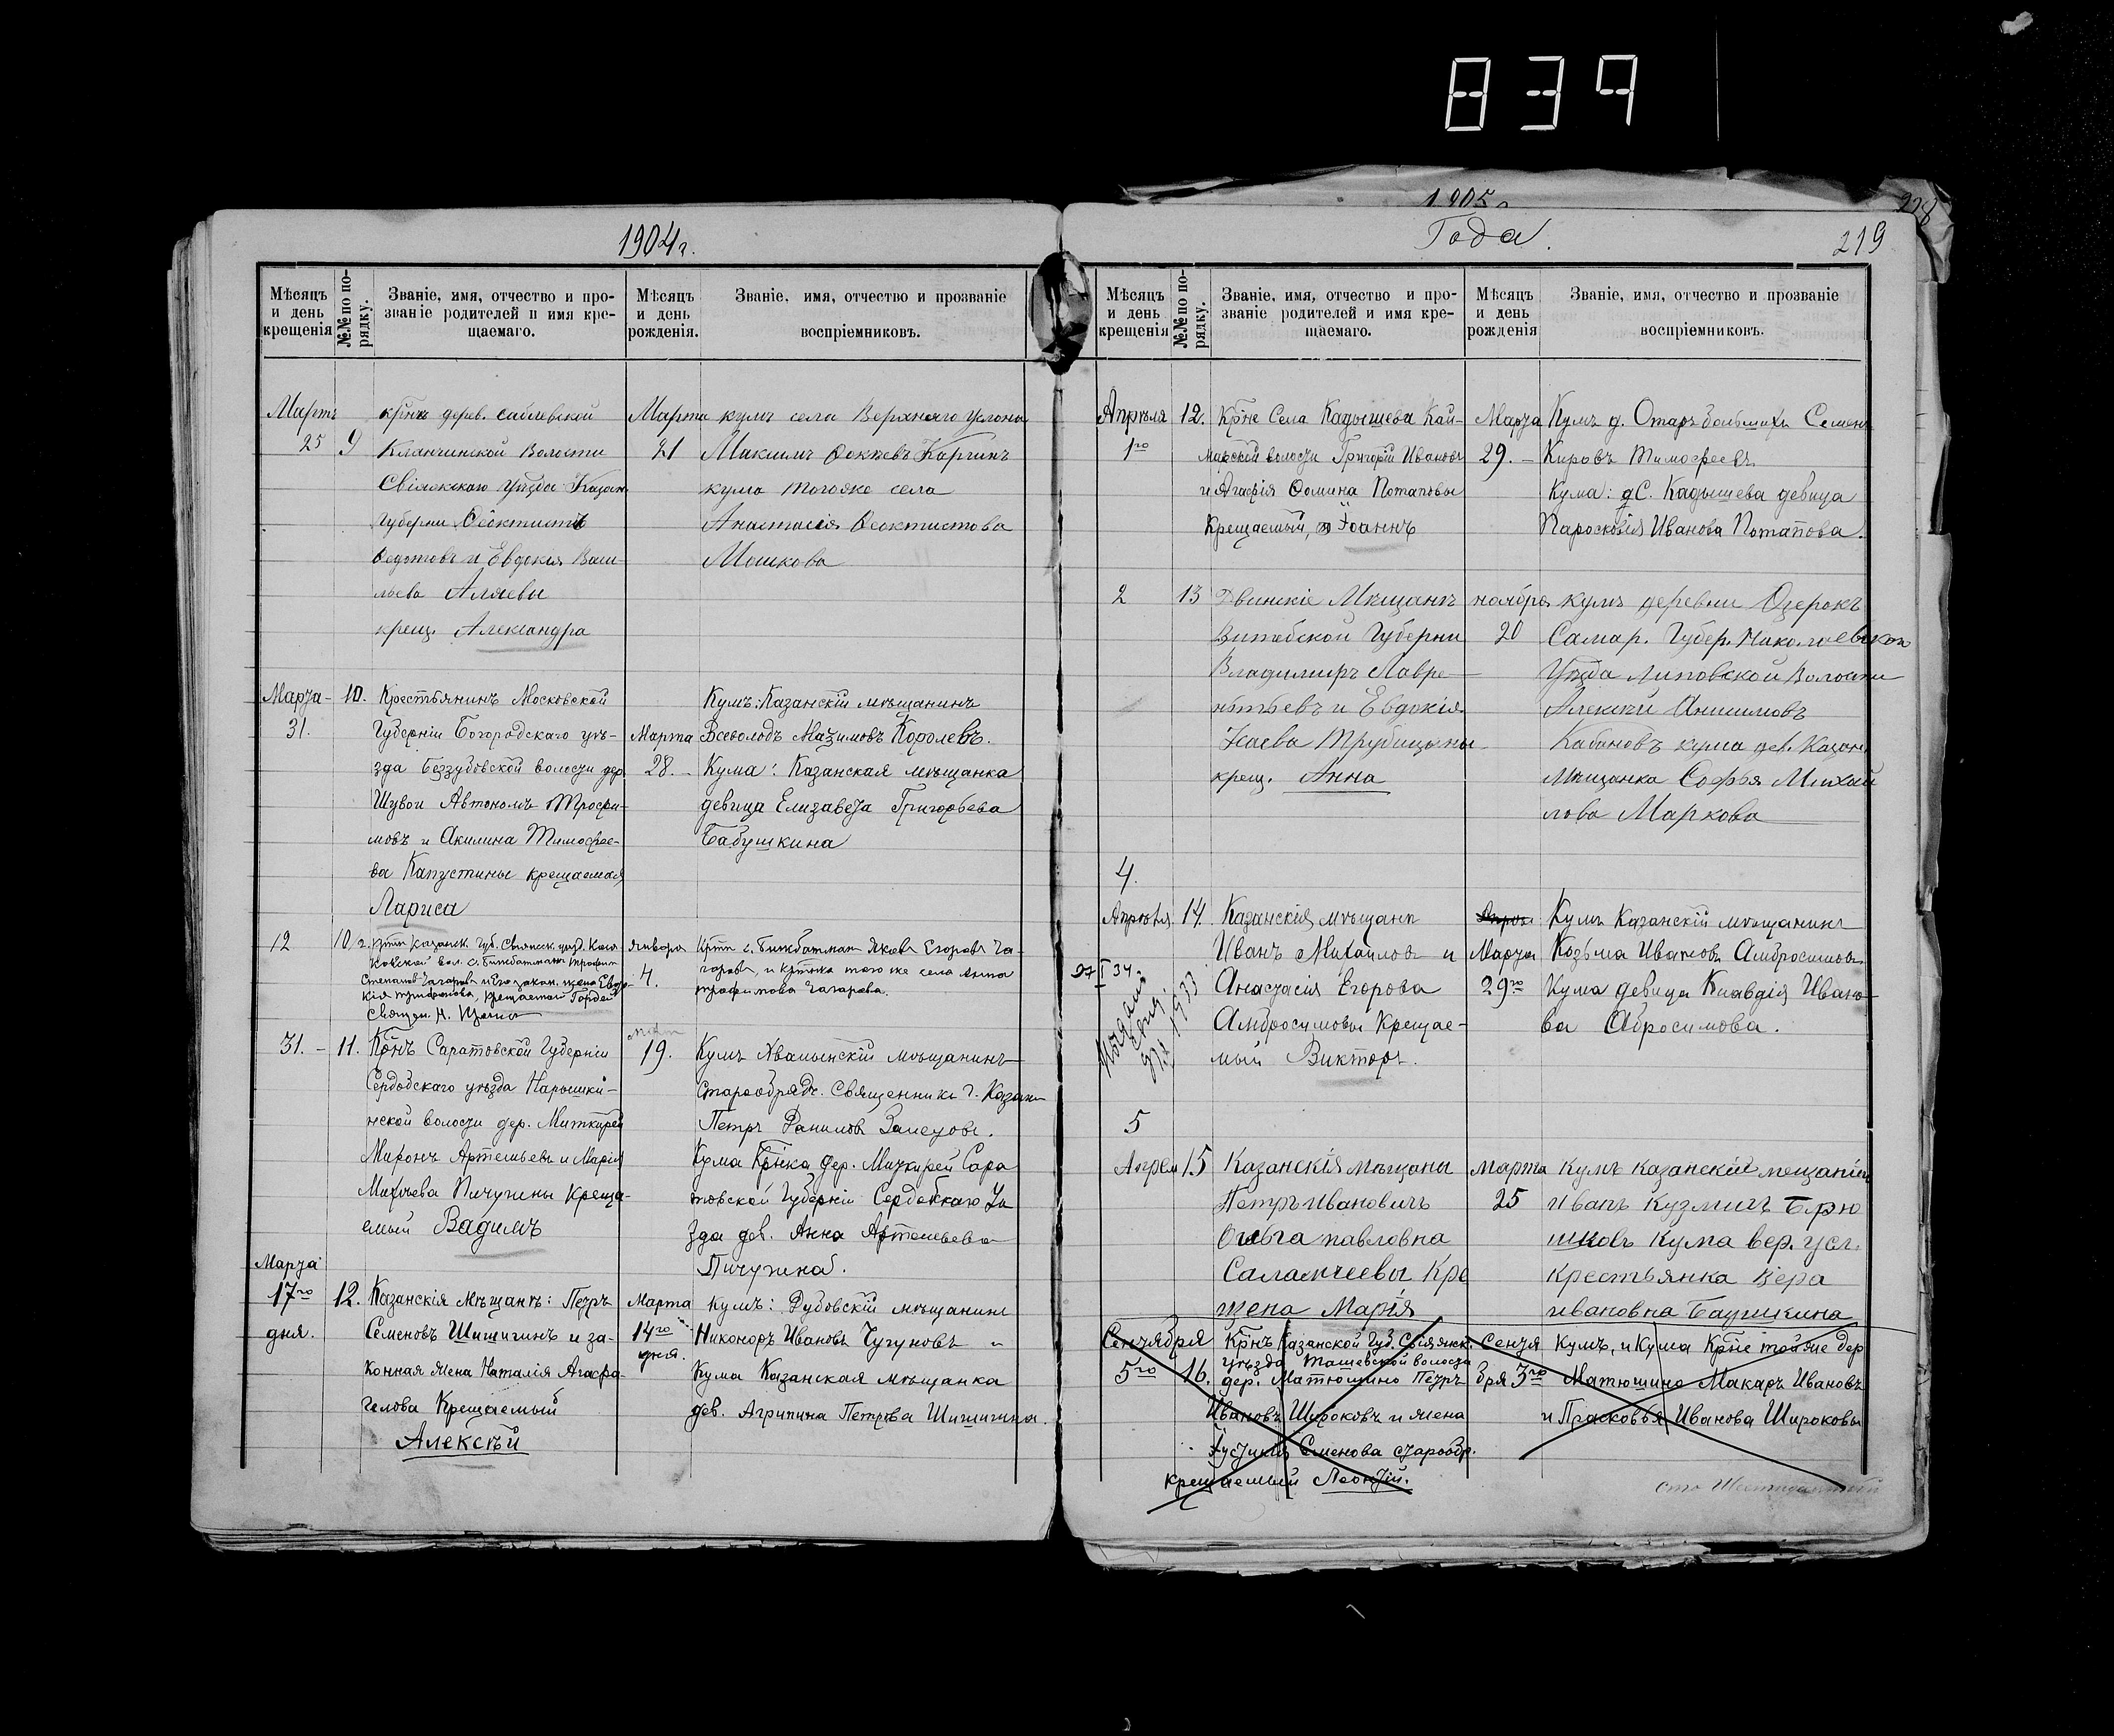 839
1905
228
1904 г.
Мѣсяцъ
и день
крещенія
№№ по по-
рядку.
Званіе, имя, отчество и про-
званіе родителей и имя кре-
щаемаго.
Мѣсяцъ
и день
рожденія.
Званіе, имя, отчество и прозваніе
воспріемниковъ.
Мартъ
25
9
крнъ дерев. саблевской
Клянчинской Волости
Свіяжскаго уѣзда Казан
Губерни Ѳеоктистъ
Ѳедотовъ и Евдокия Васи-
льева Аляевы
крещ. Александра
Марта
21
кумъ села Верхняго Услона
Максимъ Каргинъ
кума тогоже села
Анастасія Ѳеоктистова
Мошкова
Марта
31.
10.
Крестьянинъ Московской
Губерніи Богородскаго уѣ-
зда Беззубовской волости дер.
Шувои Автономъ Трофи-
мовъ и Акилина Тимофее-
ва Капустины крещаемая
Лариса
Марта
28.
Кумъ: Казанскій мѣщанинъ
Всеволодъ Максимовъ Королевъ.
Кума: Казанская мѣщанка
девица Елизавета Григорьева
Бабушкина
12
10
Казанск. Губ. Свіяжск. уѣзд.
вол. с. Бижбатман Трофим
Степанов Чагаров и Его закон. жена Евдо-
кія Трифонова, крещаемый Гордей
Свящ. Н.
Января
4.
с. Бижбатман Яковъ Егоровъ Ча-
гаровъ, и того же села Анна
Трофимова Чагарова.
31.
11.
Крнъ Саратовской Губерніи
Сердобскаго уѣзда Нарышки-
нской волости дер. Миткирей
Миронъ Артемьевъ и Марія
Пичугины Креща-
емый Вадимъ
19.
Кумъ Хвалынскій мѣщанинъ
старообрядч. Священникъ г. Казани
Петръ Даниловъ Залетовъ.
Кума Крнка дер. Миткирей Сара
товской Губерніи Сердобскаго Уѣ
зда дев. Анна Артемьева
Пичугина.
Марта
17го
дня.
12.
Казанскія Мѣщанъ: Петръ
Семеновъ Шишигинъ и за-
конная жена Наталія Агафа-
гелова Крещаемый
Алексѣй
Марта
14го
дня.
Кумъ: Дубовскій мѣщанинъ
Никоноръ Ивановъ Чугуновъ
Кума Казанская мѣщанка
дев. Агрипина Петрова Шишигина.
Года.
219
Мѣсяцъ
и день
крещенія
№№ по по-
рядку.
Званіе, имя, отчество и про-
званіе родителей и имя кре-
щаемаго.
Мѣсяцъ
и день
рожденія
Званіе, имя, отчество и прозваніе
воспріемниковъ.
Апрѣля
1го
12.
Крне Села Кадышева Кай-
марской волости Григорій Ивановъ
и Агафія Ѳомина Потаповы
Крещаемый, Іоаннъ
Марта
29.
Кумъ д. Отаръ Семенъ
Кировъ Тимофеевъ
Кума: С. Кадышева девица
Парасковія Иванова Потапова.
2
13
Двинскіе Мѣщанъ
Витебской Губерни
Владимиръ Лавре-
нтьевъ и Евдокія
Исаева Трубицыны
крещ. Анна
ноября
20
кумъ деревни Озерокъ
Самар. Губер. Николаевскаго
Уѣзда Липовской Волости
Алексѣй Анисимовъ
Кабановъ кума дев. Казан.
Мѣщанка Софья Михай
лова Маркова
4.
Апрѣля
14.
Казанскія мѣщанъ
Иванъ Михайловъ и
Анастасія Егорова
Амбросимовы Крещае-
мый Викторъ.
27 I 34
1933
Марта
29го
Кумъ Казанскій мѣщанинъ
Козьма Ивановъ Амбросимовъ
Кума девица Клавдія Ивано-
ва Абросимова.
5
Апрел
15
Казанскія мѣщаны
Петръ Ивановичъ
Ольга павловна
Саламчеевы Кре
щена Марія
марта
25
кумъ казанскій мещанинъ
Иванъ Кузмичъ Брю
шковъ Кума вер. усл.
крестьянка Вера
ивановна Баушкина
Сентября
5го
16.
Крнъ Казанской Губ. Свіяжск.
уѣзда Ташевской волости
дер. Матюшино Петръ
Ивановъ Широковъ и жена
Іустинія Семенова старообр.
крещаемый Леонтій.
Сентя
бря 3го
Кумъ, и Кума Крне той же дер
Матюшино Макаръ Ивановъ
и Прасковья Иванова Широковы